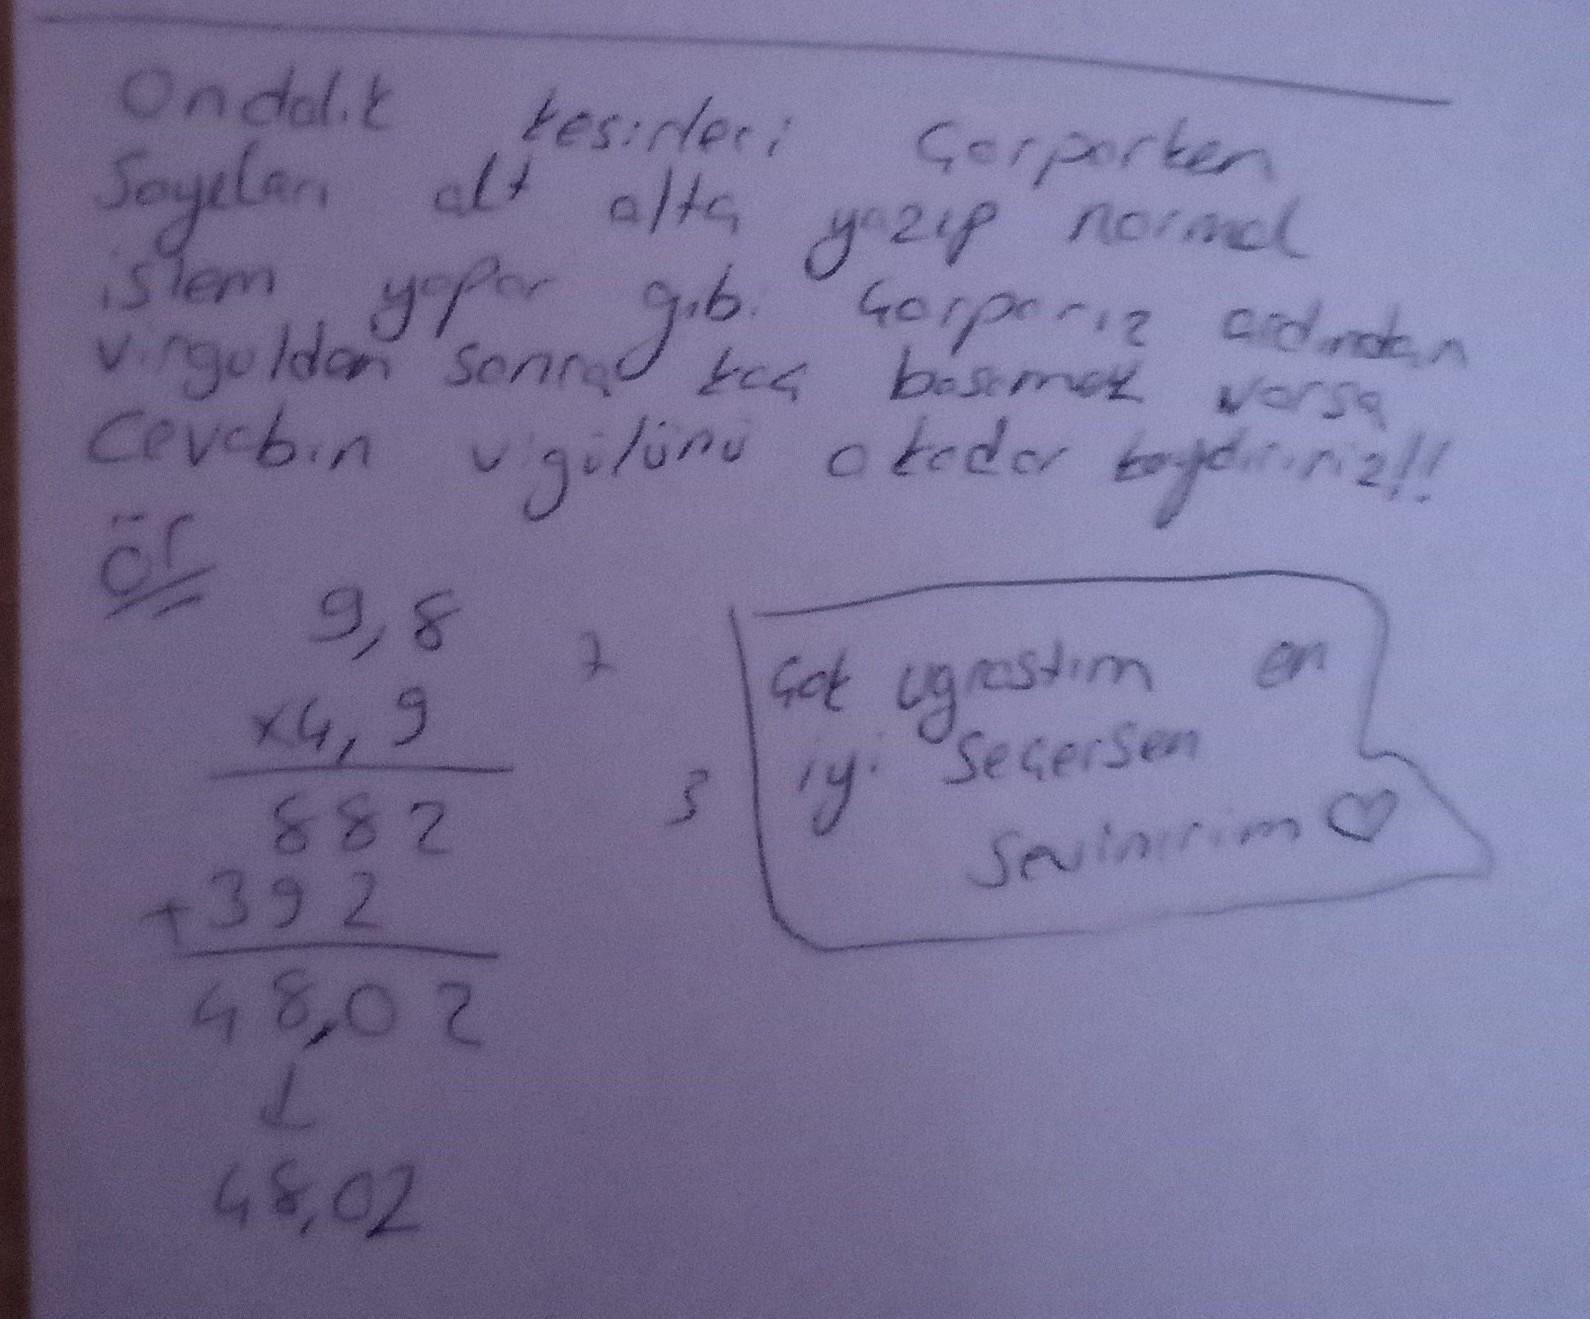 Ondalık kesirleri Çarparken
Sayıları alt alta yazıp normal
işlem yapar gibi Çarparız ardından
virgülden sonra kaç basamak varsa
Cevabın vigülünü o kadar kaydırırız!!
ör
9,8
7
x4,9
3
882
+392
48,02
↓
48,02
Çok ugrastım en
iyi seçersen
Sevinirim ♡